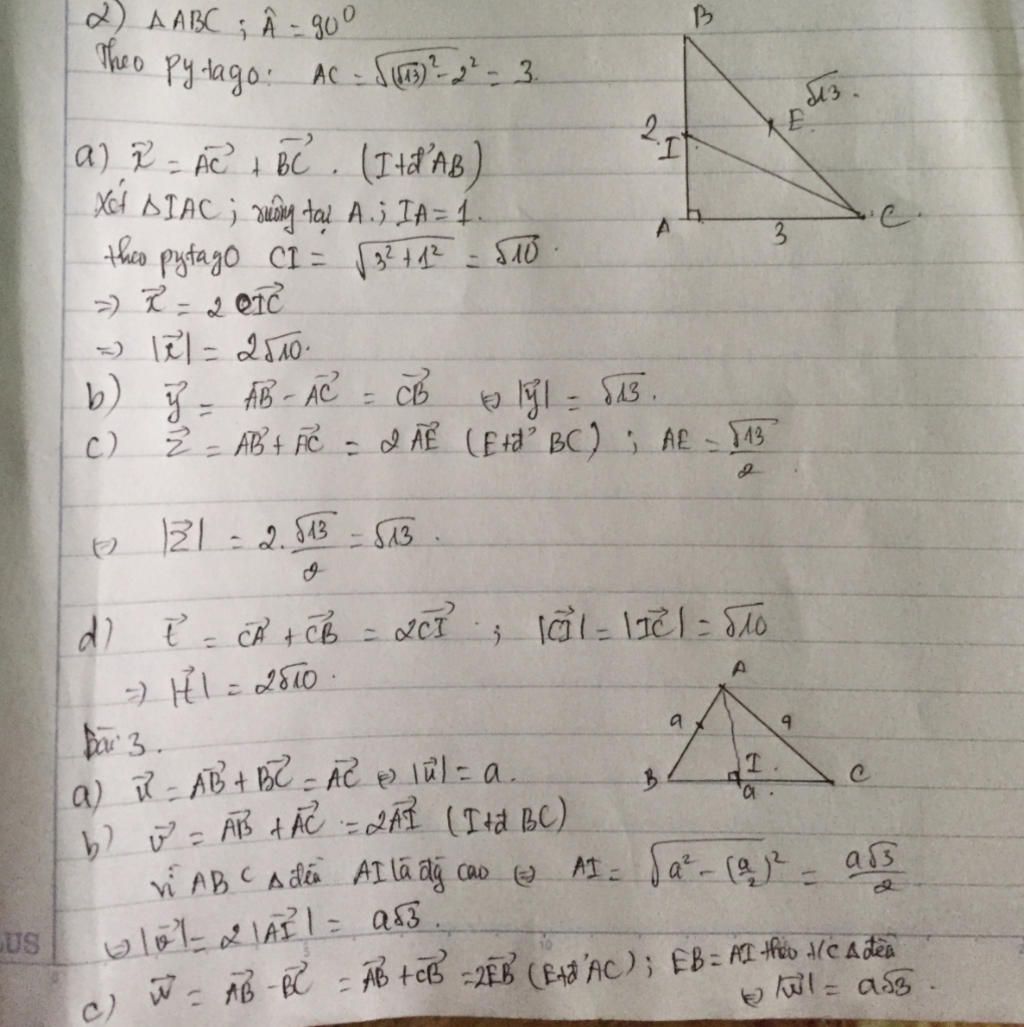 2) △ABC ; Â = 90°
Theo Pytago: AC = √((√13)² - 2²) = 3.
B
√13.
E.
2.
I
A
3
C
a) x⃗ = AC⃗ + BC⃗ . (I tđ' AB)
Xét △IAC ; vuông tại A. ; IA = 1.
theo pytago CI = √(3² + 1²) = √10.
⇒ x⃗ = 2 IC⃗
⇒ |x⃗| = 2√10.
b) y⃗ = AB⃗ - AC⃗ = CB⃗ ⇔ |y⃗| = √13.
c) z⃗ = AB⃗ + AC⃗ = 2 AE⃗ (E tđ' BC) ; AE = √13/2.
⇔ |z⃗| = 2. √13/2 = √13.
d) t⃗ = CA⃗ + CB⃗ = 2CI⃗ ; |CI⃗| = |IC⃗| = √10
⇒ |t⃗| = 2√10.
A
a
a
B
I.
a.
C
Bài 3.
a) u⃗ = AB⃗ + BC⃗ = AC⃗ ⇔ |u⃗| = a.
b) v⃗ = AB⃗ + AC⃗ = 2AI⃗ (I tđ BC)
vì ABC △ đều AI là đg cao ⇔ AI = √(a² - (a/2)²) = a√3/2
⇔ |v⃗| = 2|AI⃗| = a√3.
c) w⃗ = AB⃗ - BC⃗ = AB⃗ + CB⃗ = 2EB⃗ (E tđ' AC) ; EB = AI theo t/c △ đều
⇔ |w⃗| = a√3.
US
10